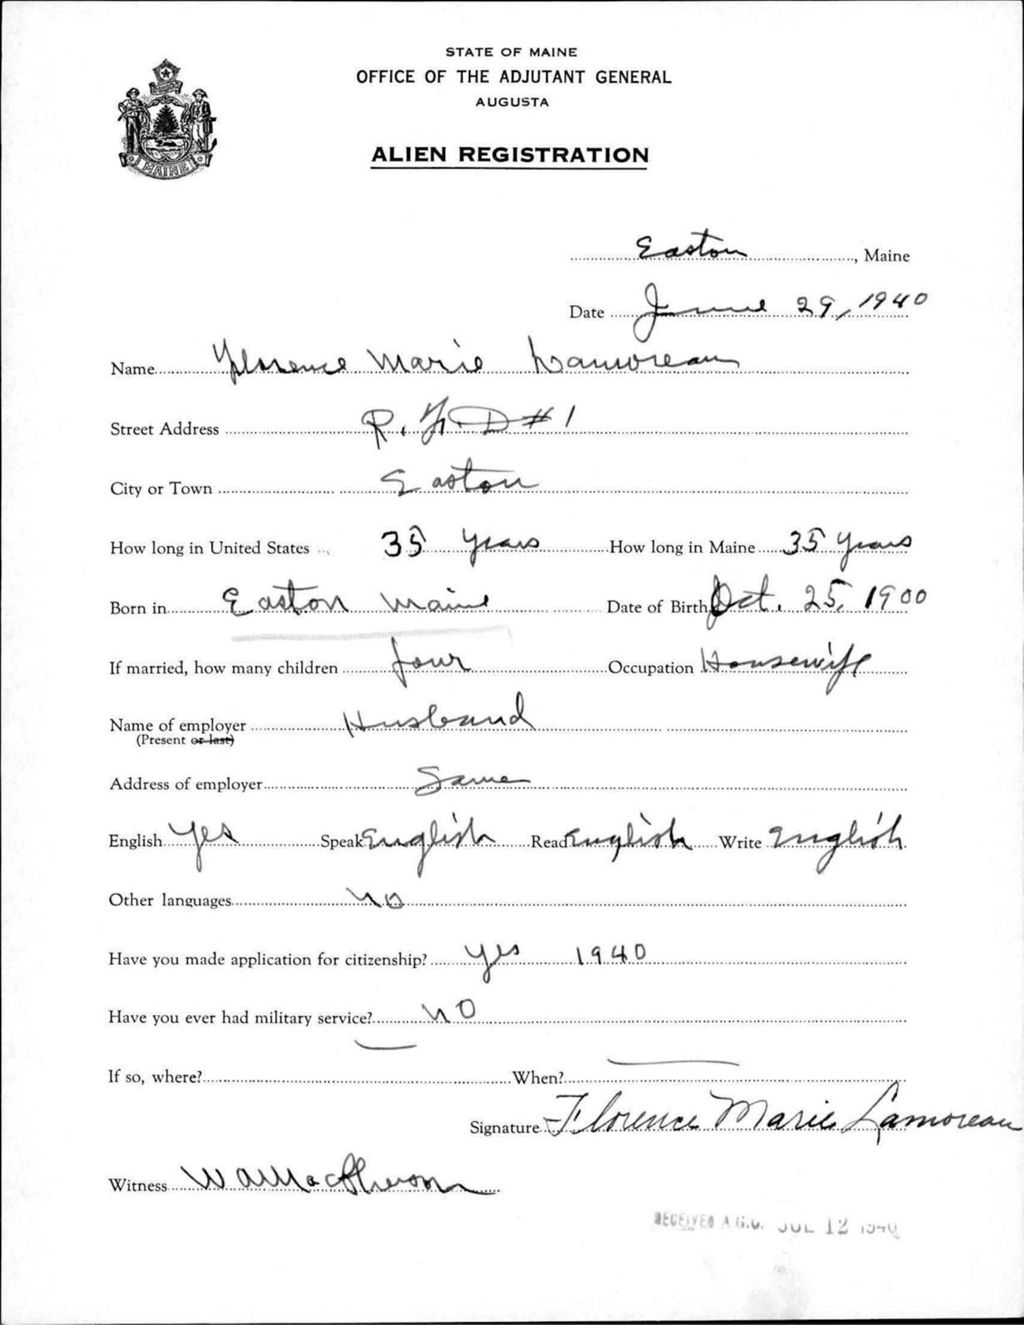 STATE OF MAINE
OFFICE OF THE ADJUTANT GENERAL
AUGUSTA
ALIEN REGISTRATION
MAINE
Easton, Maine
Date June 29, 1940
Name Florence Marie Lamoreau
Street Address R.F.D #1
City or Town Easton
How long in United States 35 years How long in Maine 35 years
Born in Easton Maine Date of Birth Oct. 25, 1900
If married, how many children four Occupation Housewife
Name of employer Husband
(Present or last)
Address of employer Same
English Yes Speak English Read English Write English
Other languages no
Have you made application for citizenship? yes 1940
Have you ever had military service? no
If so, where? When?
Signature Florence Marie Lamoreau
Witness
RECEIVED A.G.O. JUL 12 1940